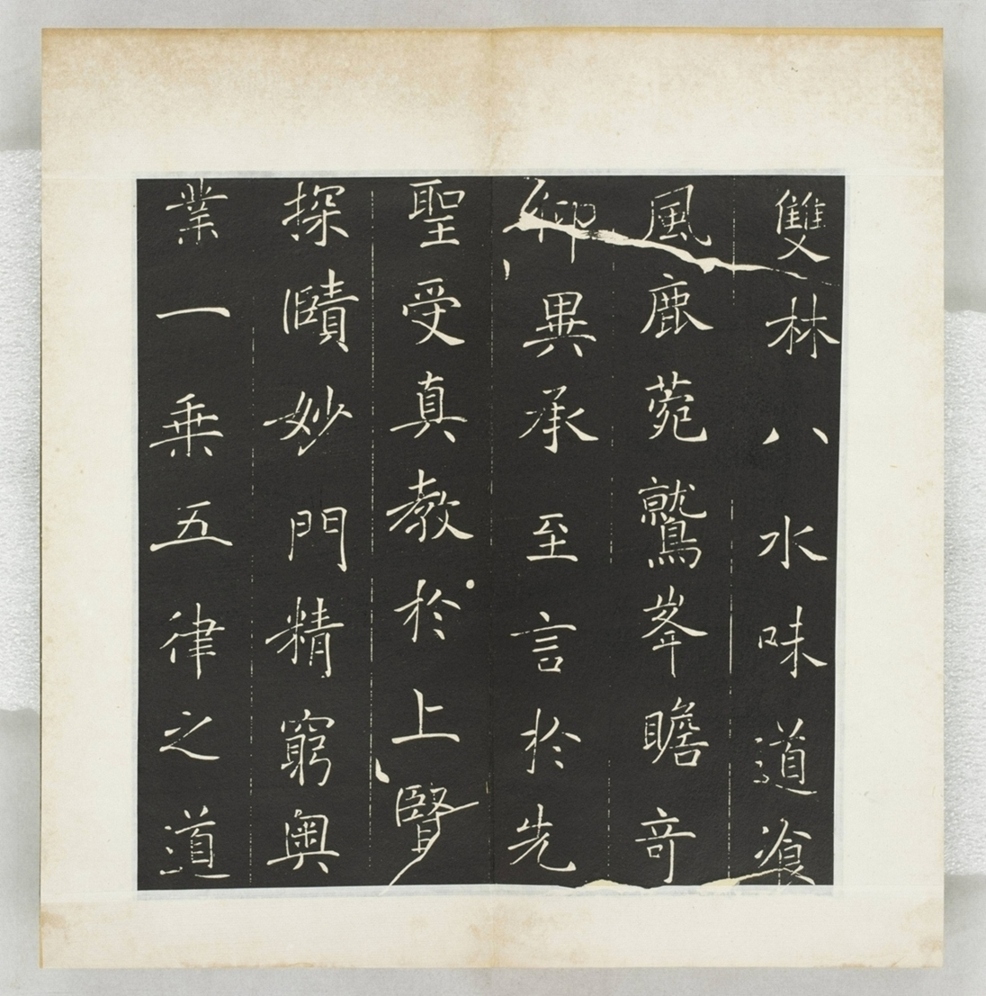 雙林八水味道飡
風鹿菀鷲峯瞻奇
仰異承至言於先
聖受真教於上賢
探賾妙門精窮奧
業一乗五律之道